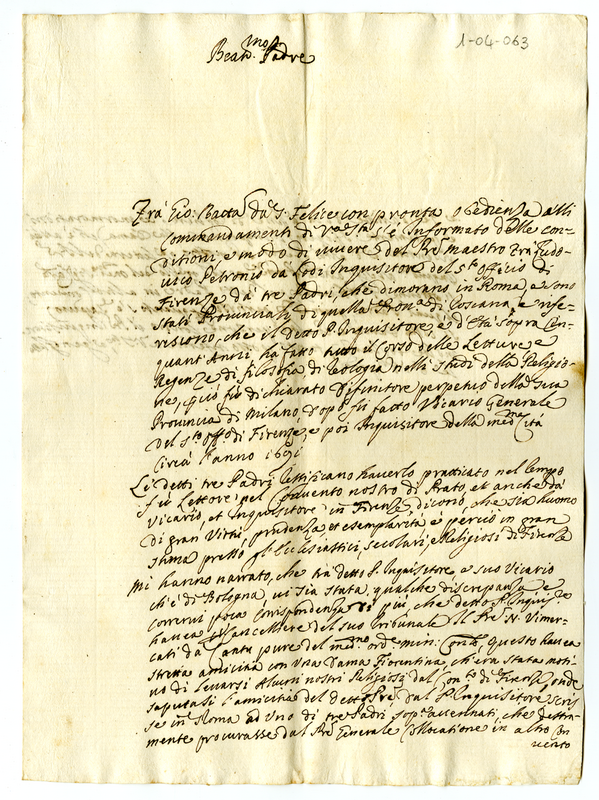 1-04-063
Beat.mo Padre
Frà Gio: Batta da S. Felice con pronta obedienza alli
Commandamenti di V.a S.tà s'è informato delle con-
ditioni, e modo di vivere del P.re Maestro Frà Ludo-
vico Petronio da Lodi Inquisitore del S.to Officio di
Firenze da tre Padri, che dimorano in Roma, e sono
stati Provinciali di quella Prov.a di Toscana, e rife-
riscono, che il detto P. Inquisitore, è d'Età sopra Cin-
quant'Anni, hà fatto tutto il Corso delle Letture, e
Regenze di filosofia, di Teologia nelli studi della Religio-
ne, quó fù dichiarato Difinitore perpetuo della sua
Provincia di Milano dopo fù fatto Vicario Generale
del S.to Off.o di Firenze, e poi Inquisitore della med.ma Città
Circa l'anno 1691
Li detti tre Padri testificano haverlo pratticato nel tempo
fù Lettore nel Convento nostro di Prato et anche da
Vicario, et Inquisitore in Firenze, dicono, che sia huomo
di gran Virtù, prudenza, et esemplarità e perciò in gran
stima presso gl'Ecclesiastici, secolari, e Religiosi di Firenze
Mi hanno narrato, che trà detto P. Inquisitore e suo Vicario
ch'è di Bologna, vi sia stata qualche discrepanza e
corrervi poca corrispondenza di più, che detto P. Inquis.re
havea Cancelliere del suo Tribunale il P.re N. Vimer-
cati da Cantù pure del med.mo ord.e min: Con.li, questo havea
stretta amicitia con una Dama Fiorentina, ch'era stata moti-
vo di levarsi Alcuni nostri Religiosi dal Con.to di Firenze, onde
saputasi l'amicitia del detto P.re dal P. Inquisitore scris
se in Roma ad uno di tre Padri sop.a accennati, che destra-
mente procurasse dal P.re Generale Collocatione in altro Con
vento